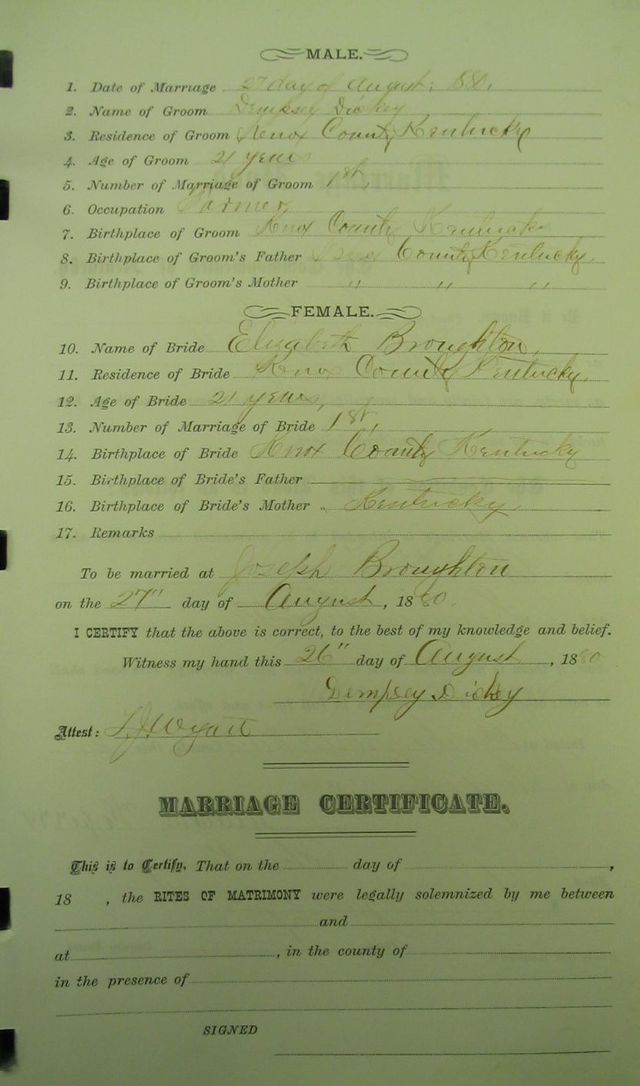 MALE.
1. Date of Marriage 27 day of August, 1880,
2. Name of Groom Dempsey Dickey
3. Residence of Groom Knox County Kentucky
4. Age of Groom 21 years
5. Number of Marriage of Groom 1st,
6. Occupation Farmer
7. Birthplace of Groom Knox County Kentucky
8. Birthplace of Groom's Father County Kentucky.
9. Birthplace of Groom's Mother " " "
FEMALE.
10. Name of Bride Elizabeth Broughton,
11. Residence of Bride Knox County Kentucky,
12. Age of Bride 21 years,
13. Number of Marriage of Bride 1st,
14. Birthplace of Bride Knox County Kentucky
15. Birthplace of Bride's Father
16. Birthplace of Bride's Mother " Kentucky,
17. Remarks
To be married at Joseph Broughton
on the 27" day of August, 1880.
I CERTIFY that the above is correct, to the best of my knowledge and belief.
Witness my hand this 26" day of August, 1880
Dempsey Dickey
Attest: Wyatt
MARRIAGE CERTIFICATE.
This is to Certify, That on the day of ,
18 , the RITES OF MATRIMONY were legally solemnized by me between
and
at , in the county of
in the presence of
SIGNED